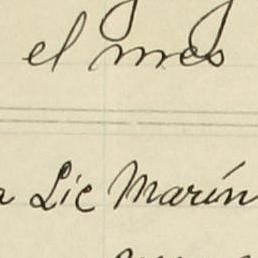 el mes
a Lic Marín